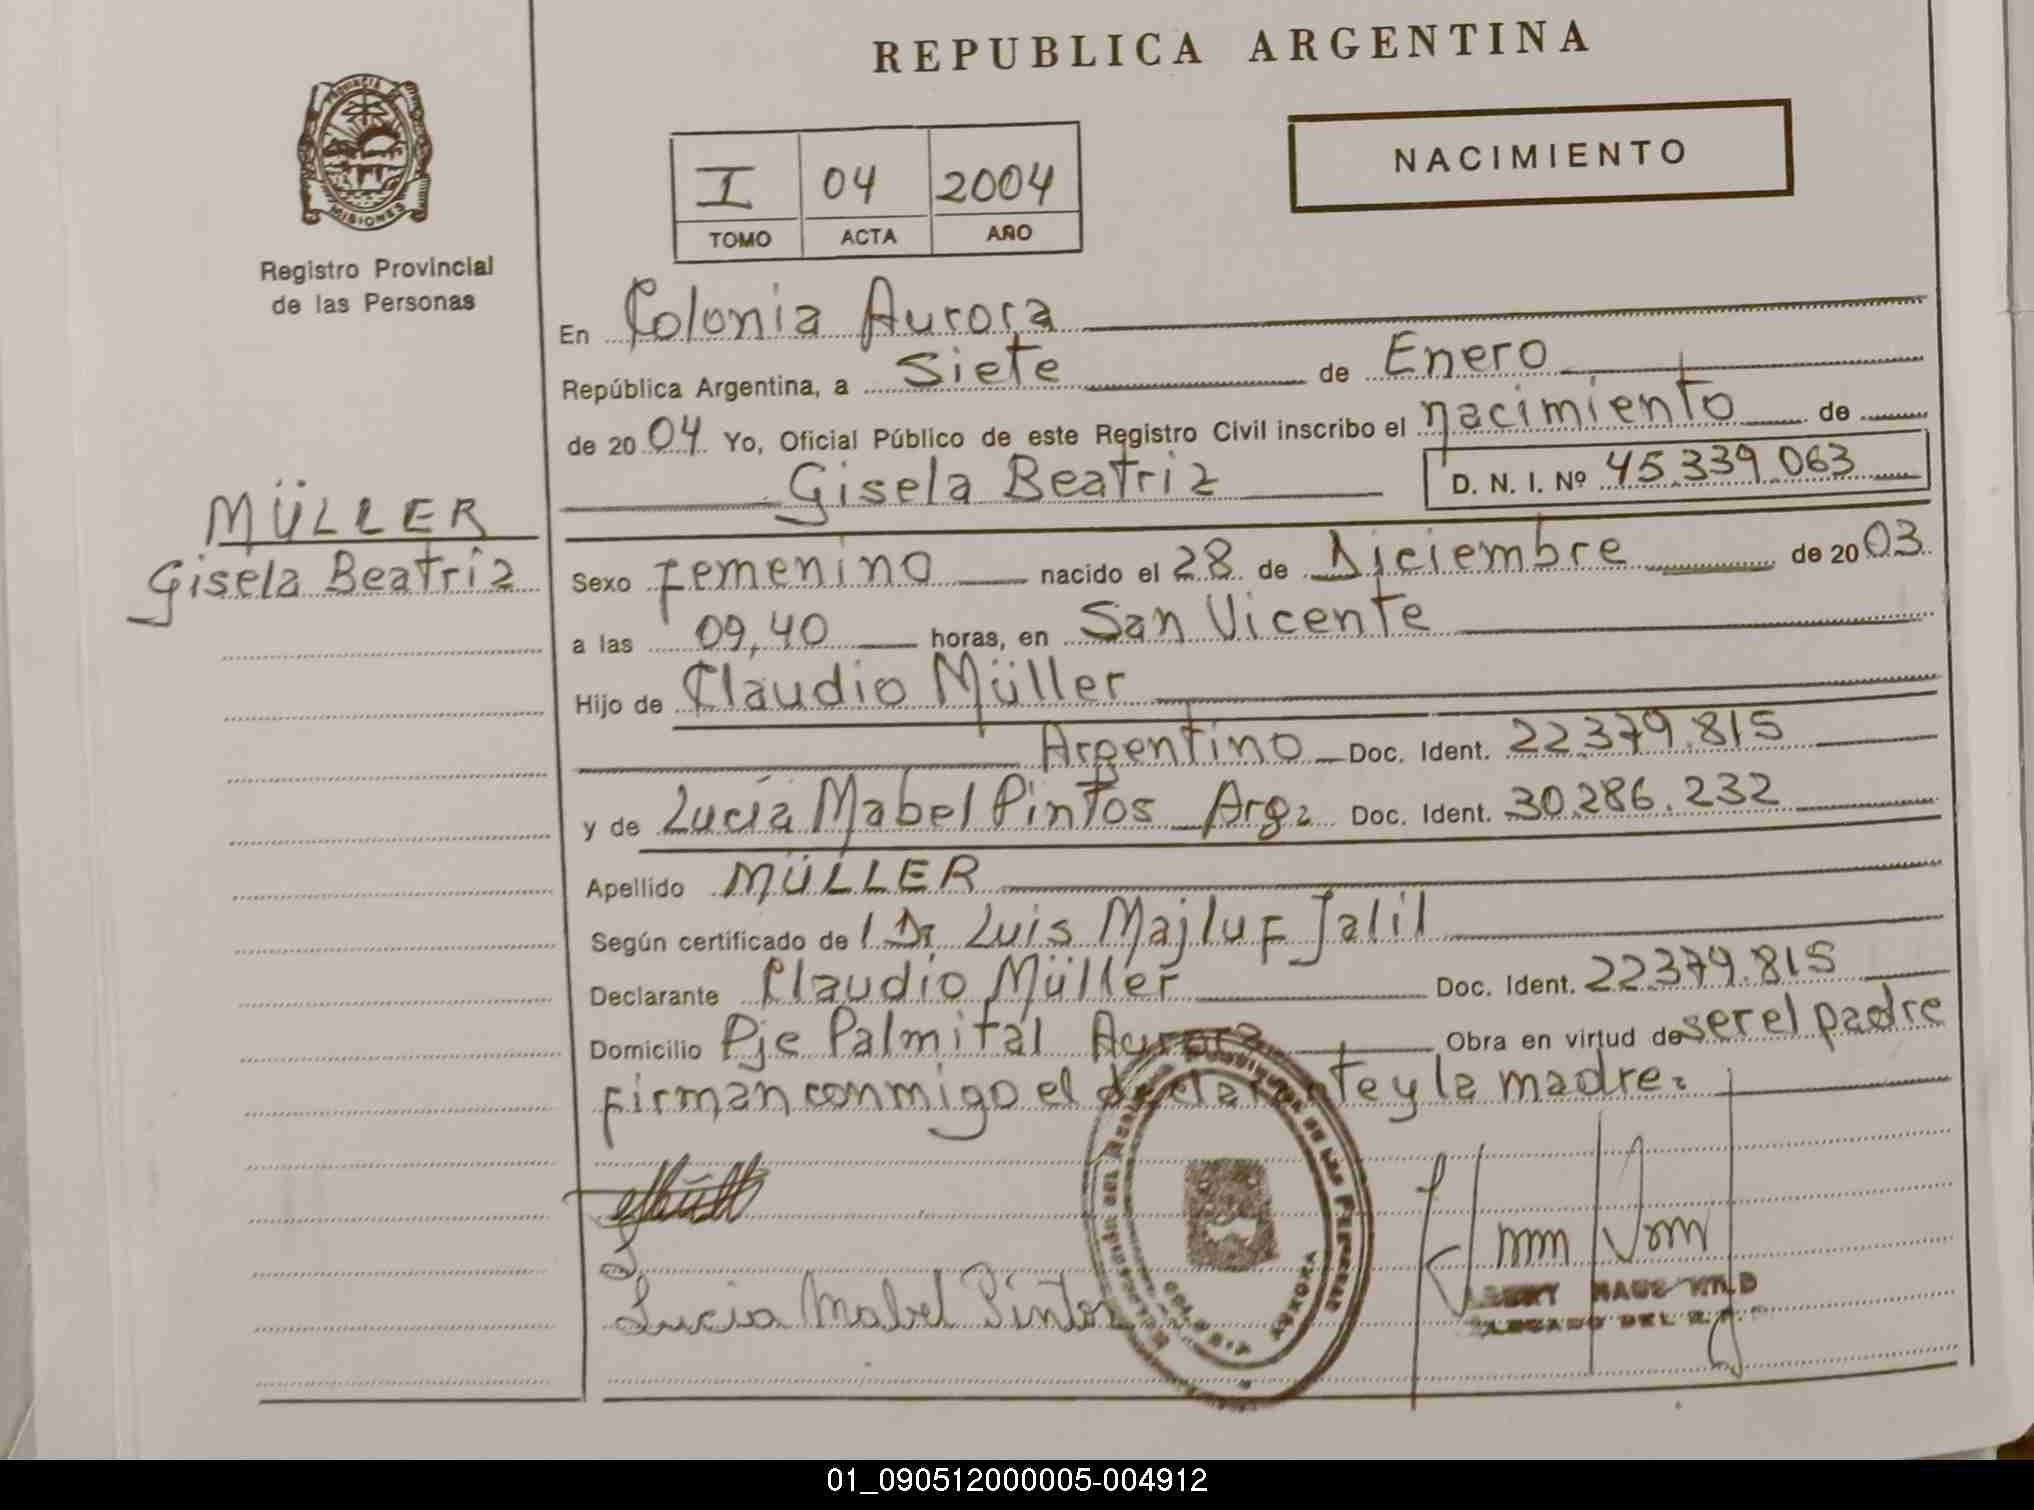 REPUBLICA ARGENTINA
PROVINCIA
MISIONES
Registro Provincial
de las Personas
NACIMIENTO
I 04 2004
TOMO ACTA AÑO
En Colonia Aurora
República Argentina, a Siete de Enero
de 2004 Yo, Oficial Público de este Registro Civil inscribo el nacimiento de
Gisela Beatriz D. N. I. Nº 45.339.063
MÜLLER
Gisela Beatriz
Sexo Femenino nacido el 28 de Diciembre de 2003
a las 09,40 horas, en San Vicente
Hijo de Claudio Müller
Argentino Doc. Ident. 22.379.815
y de Lucía Mabel Pintos Arg. Doc. Ident. 30.286.232
Apellido MÜLLER
Según certificado de Dr Luis Majluf Jalil
Declarante Claudio Müller Doc. Ident. 22.379.815
Domicilio Pje Palmital Aurora Obra en virtud de ser el padre
Firman conmigo el declarante y la madre.
Lucia Mabel Pintos
DE LAS PERSONAS
COLONIA AURORA
DEL R.P.
01_090512000005-004912